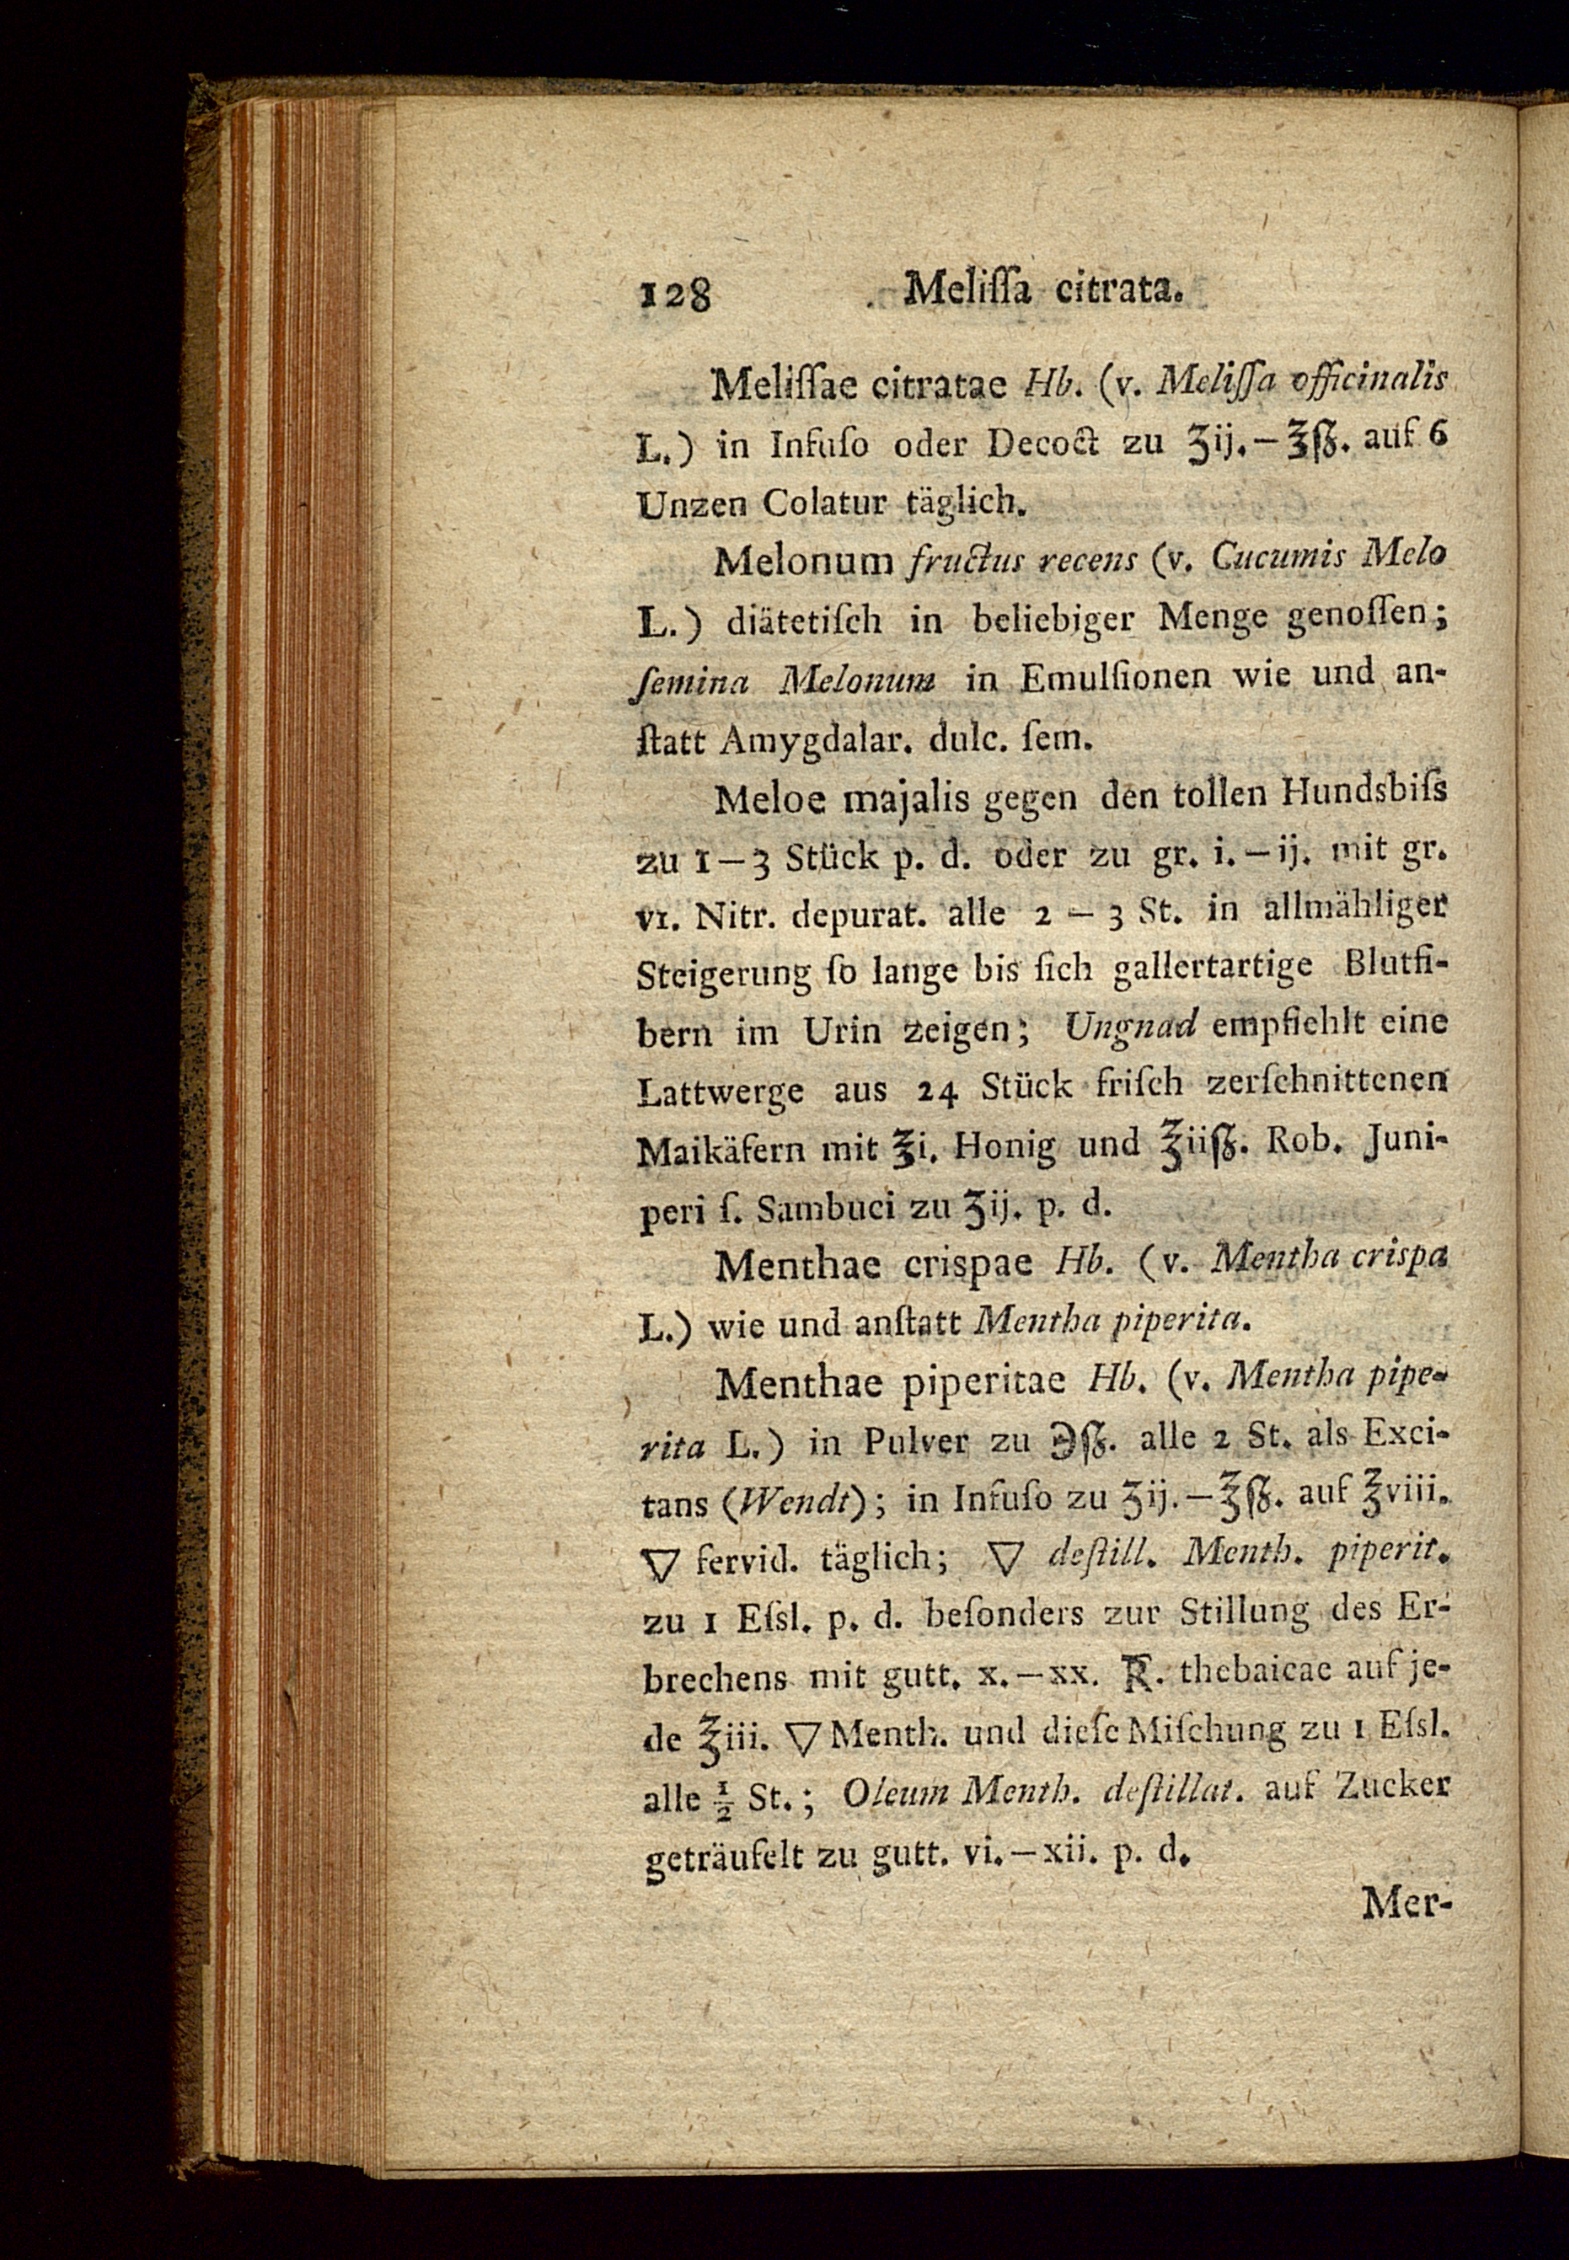 128 Meliſſa citrata.
Meliſſae citratae Hb. (v. Meliſſa officinalis
L.) in Infuſo oder Decoct zu ʒij. — ℥ſß. auf 6
Unzen Colatur täglich.
Melonum fructus recens (v. Cucumis Melo
L.) diätetiſch in beliebiger Menge genoſſen;
ſemina Melonum in Emulſionen wie und an-
ſtatt Amygdalar. dulc. ſem.
Meloe majalis gegen den tollen Hundsbiſs
zu 1 — 3 Stück p. d. oder zu gr. i. — ij. mit gr.
vi. Nitr. depurat. alle 2 — 3 St. in allmähliger
Steigerung ſo lange bis ſich gallertartige Blutfi-
bern im Urin zeigen; Ungnad empfiehlt eine
Lattwerge aus 24 Stück friſch zerſchnittenen
Maikäfern mit ℥i. Honig und ℥iiſß. Rob. Juni-
peri ſ. Sambuci zu ʒij. p. d.
Menthae crispae Hb. (v. Mentha crispa
L.) wie und anſtatt Mentha piperita.
Menthae piperitae Hb. (v. Mentha pipe-
rita L.) in Pulver zu ℈ſß. alle 2 St. als Exci-
tans (Wendt); in Infuſo zu ʒij. — ℥ſß. auf ℥viii.
▽ fervid. täglich; ▽ deſtill. Menth. piperit.
zu 1 Eſsl. p. d. beſonders zur Stillung des Er-
brechens mit gutt. x. — xx. R. thebaicae auf je-
de ℥iii. ▽ Menth. und dieſe Miſchung zu 1 Eſsl.
alle ½ St.; Oleum Menth. deſtillat. auf Zucker
geträufelt zu gutt. vi. — xii. p. d.
Mer-